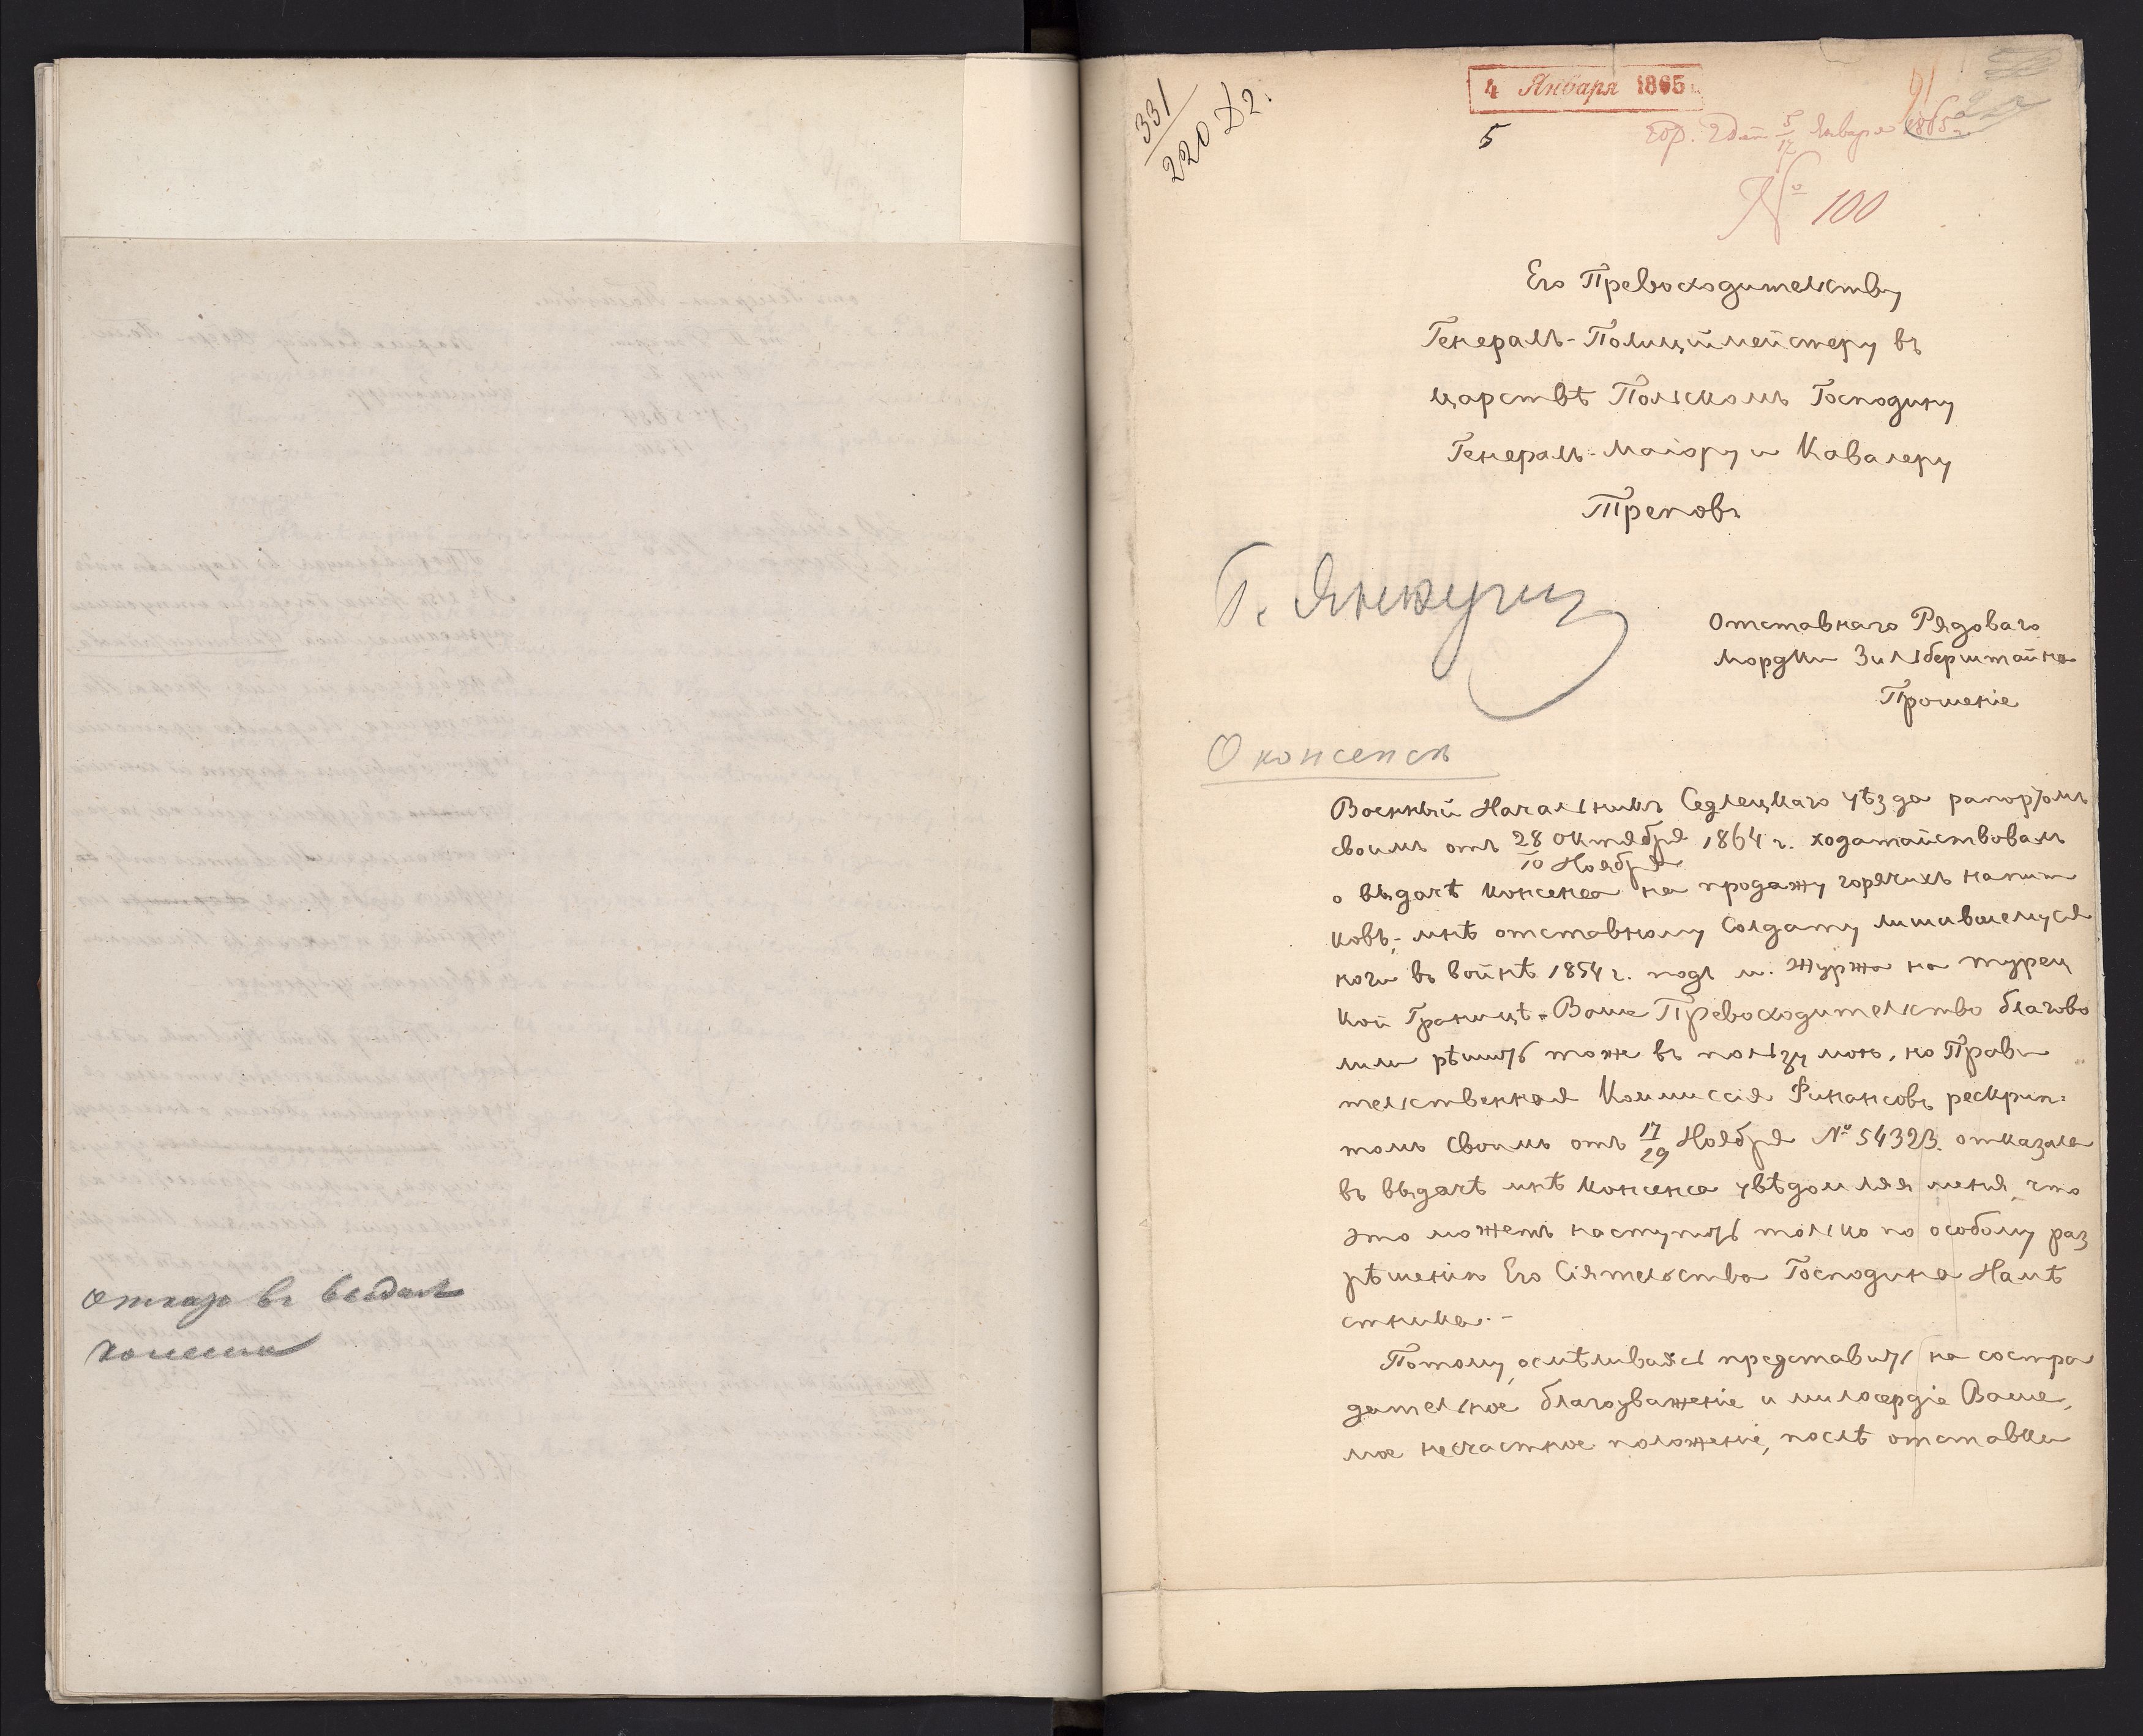 Отказъ въ выдачѣ
консенса
331
220 Д2.
4 Января 1865
5
Января 1865 г.
№ 100
Его Превосходителству
Генералъ-Полицiймейстеру въ
царствѣ Полскомъ Господину
Генералъ-Маiору и Кавалеру
Треповъ
Г. Янкулиц
Отставнаго Рядоваго
Мордки Зилберштайна
Прошенiе
О консенсѣ
Военный Началникъ Седлецкаго уѣзда рапортомъ
своимъ отъ 28 Октября 1864 г. ходатайствовалъ
10 Ноября
о выдачѣ консенса на продажу горячихъ напит
ковъ,- мнѣ отставному Солдату лишившемуся
ноги въ войнѣ 1854 г. подъ м. Журжа на турец
кой Границѣ. Ваше Превосходителство благово
лили рѣшить тоже въ ползу мою, но Прави
телственная Коммиссiя Финансовъ рескрип=
томъ своимъ отъ 17/29 Ноября № 54323. отказала
въ выдачѣ мнѣ консенса увѣдомляя меня, что
это можетъ наступить толко по особому раз
рѣшенiю Его Сiятелства Господина Намѣ
стника.-
Потому, осмѣливаюсь представить на состра
дателное благоуваженiе и милосердiе Ваше,
мое несчастное положенiе, послѣ отставки